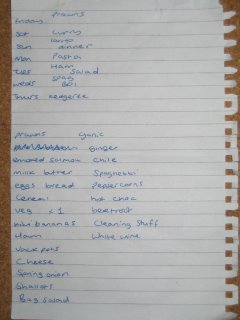 Friday prawns
Sat curry
Sun dinner
Mon Pasta
Tues Ham Salad
Weds Spag Bol
Thurs Kedgeree
prawns garlic
ginger
smoked salmon chile
milk butter Spaghetti
eggs bread Peppercorns
Cereal hot choc
veg x1 beetroot
mini bananas Cleaning Stuff
Ham White wine
Jack pots
Cheese
Spring onion
Shallots
Bag Salad